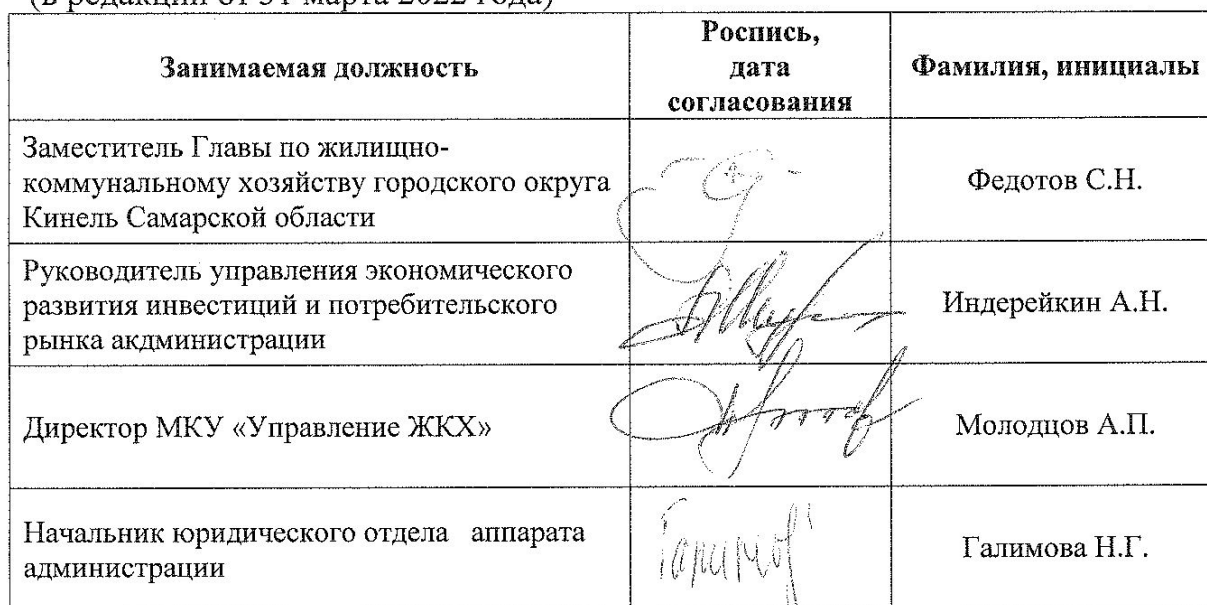 (в редакции от 31 марта 2022 года)
Занимаемая должность
Роспись,
дата
согласования
Фамилия, инициалы
Заместитель Главы по жилищно-
коммунальному хозяйству городского округа
Кинель Самарской области
Федотов С.Н.
Руководитель управления экономического
развития инвестиций и потребительского
рынка акдминистрации
Индерейкин А.Н.
Директор МКУ «Управление ЖКХ»
Молодцов А.П.
Начальник юридического отдела аппарата
администрации
Галимова Н.Г.